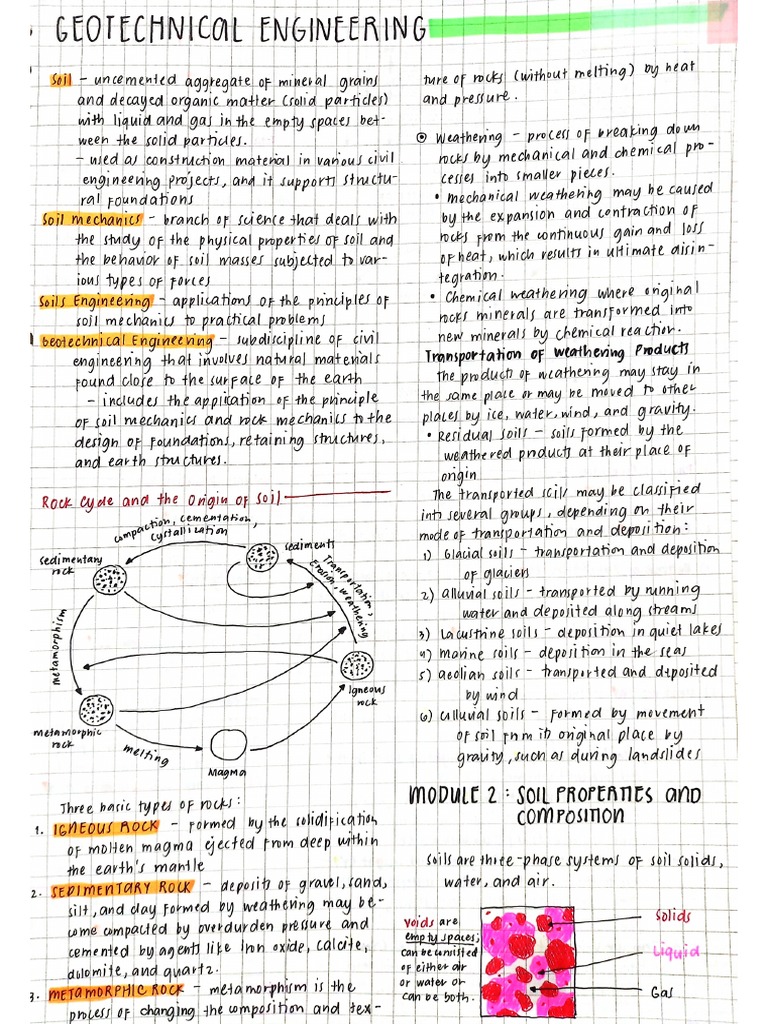 GEOTECHNICAL ENGINEERING
Soil - uncemented aggregate of mineral grains
and decayed organic matter (solid particles)
with liquid and gas in the empty spaces bet-
ween the solid particles.
- used as construction material in various civil
engineering projects, and it supports structu-
ral foundations
Soil mechanics - branch of science that deals with
the study of the physical properties of soil and
the behavior of soil masses subjected to var-
ious types of forces
Soils Engineering - applications of the principles of
soil mechanics to practical problems
Geotechnical Engineering - subdiscipline of civil
engineering that involves natural materials
found close to the surface of the earth
- includes the application of the principle
of soil mechanics and rock mechanics to the
design of foundations, retaining structures,
and earth structures.
Rock Cycle and the Origin of Soil
compaction, cementation,
cystallization
sedimentary
rock
sediments
Transportation,
Erosion, weathering
metamorphism
Igneous
rock
metamorphic
rock
melting
Magma
Three basic types of rocks:
1. IGNEOUS ROCK - formed by the solidification
of molten magma ejected from deep within
the earth's mantle
2. SEDIMENTARY ROCK - deposits of gravel, sand,
silt, and clay formed by weathering may be-
come compacted by overdurden pressure and
cemented by agents like Iron oxide, calcite,
dolomite, and quartz.
3. METAMORPHIC ROCK - metamorphism is the
process of changing the composition and tex-
ture of rocks (without melting) by heat
and pressure.
Weathering - process of breaking down
rocks by mechanical and chemical pro-
cesses into smaller pieces.
• mechanical weathering may be caused
by the expansion and contraction of
rocks from the continuous gain and loss
of heat, which results in ultimate disin-
tegration.
• Chemical weathering where original
rocks minerals are transformed into
new minerals by chemical reaction.
Transportation of Weathering Products
The products of weathering may stay in
the same place or may be moved to other
places by ice, water, wind, and gravity.
• Residual soils - soils formed by the
weathered products at their place of
origin
The transported soils may be classified
into several groups, depending on their
mode of transportation and deposition:
1) Glacial soils - transportation and deposition
of glaciers
2) alluvial soils - transported by running
water and deposited along streams
3) Lacustrine soils - deposition in quiet lakes
4) marine soils - deposition in the seas
5) aeolian soils - transported and deposited
by wind
6) colluvial soils - formed by movement
of soil from its original place by
gravity, such as during landslides
MODULE 2 : SOIL PROPERTIES AND
COMPOSITION
Soils are three-phase systems of soil solids,
water, and air.
voids are
empty spaces;
can be consisted
of either air
or water or
can be both.
Solids
Liquid
Gas